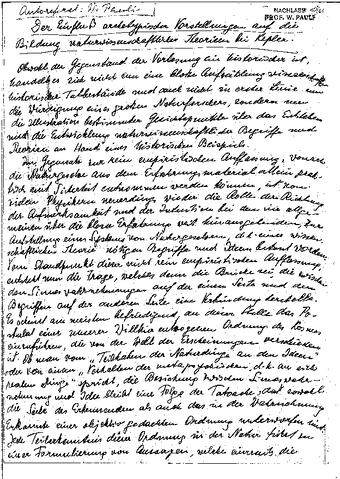 Autoreferat: W. Pauli
NACHLASS
PROF. W. PAULI
Der Einfluß archetypischer Vorstellungen auf die
Bildung naturwissenschaftlicher Theorien bei Kepler.
Obwohl der Gegenstand der Vorlesung ein historischer ist,
handelt es sich nicht um eine bloße Aufzählung
historischer Tatbestände und auch nicht in erster Linie um
die Würdigung eines großen Naturforschers, sondern um
die Illustration bestimmter Gesichtspunkte über das Entstehen
und die Entwicklung naturwissenschaftlicher Begriffe und
Theorien an Hand eines historischen Beispiels.
Im Gegensatz zur rein empiristischen Auffassung, wonach
die Naturgesetze aus dem Erfahrungsmaterial allein
mit Sicherheit entnommen werden können, ist von
vielen Physikern neuerdings wieder die Rolle der Richtung
der Aufmerksamkeit und der Intuition bei den im allge-
meinen über die bloße Erfahrung weit hinausgehenden, zur
Aufstellung eines Systems von Naturgesetzen, d.h. einer wissen-
schaftlichen Theorie nötigen Begriffe und Ideen betont worden.
Vom Standpunkt dieser nicht rein empiristischen Auffassung,
entsteht nun die Frage, welches denn die Brücke sei, die zwischen
den Sinneswahrnehmungen auf der einen Seite und den
Begriffen auf der anderen Seite eine Verbindung herstelle.
Es scheint am meisten befriedigend, an dieser Stelle das Po-
stulat einer unserer Willkür entzogenen Ordnung des Kosmos
einzuführen, die von der Welt der Erscheinungen verschieden
ist. Ob man vom „Teilhaben der Naturdinge an den Ideen"
oder von einem „Verhalten der metaphysischen, d.h. an sich
realen Dinge" spricht, die Beziehung zwischen Sinneswahr-
nehmung und Idee bleibt eine Folge der Tatsache, daß sowohl
die Seele des Erkennenden als auch das in der Wahrnehmung
Erkannte einer objektiv gedachten Ordnung unterworfen sind.
Jede Teilerkenntnis dieser Ordnung in der Natur führt zu
einer Formulierung von Aussagen, welche einerseits die